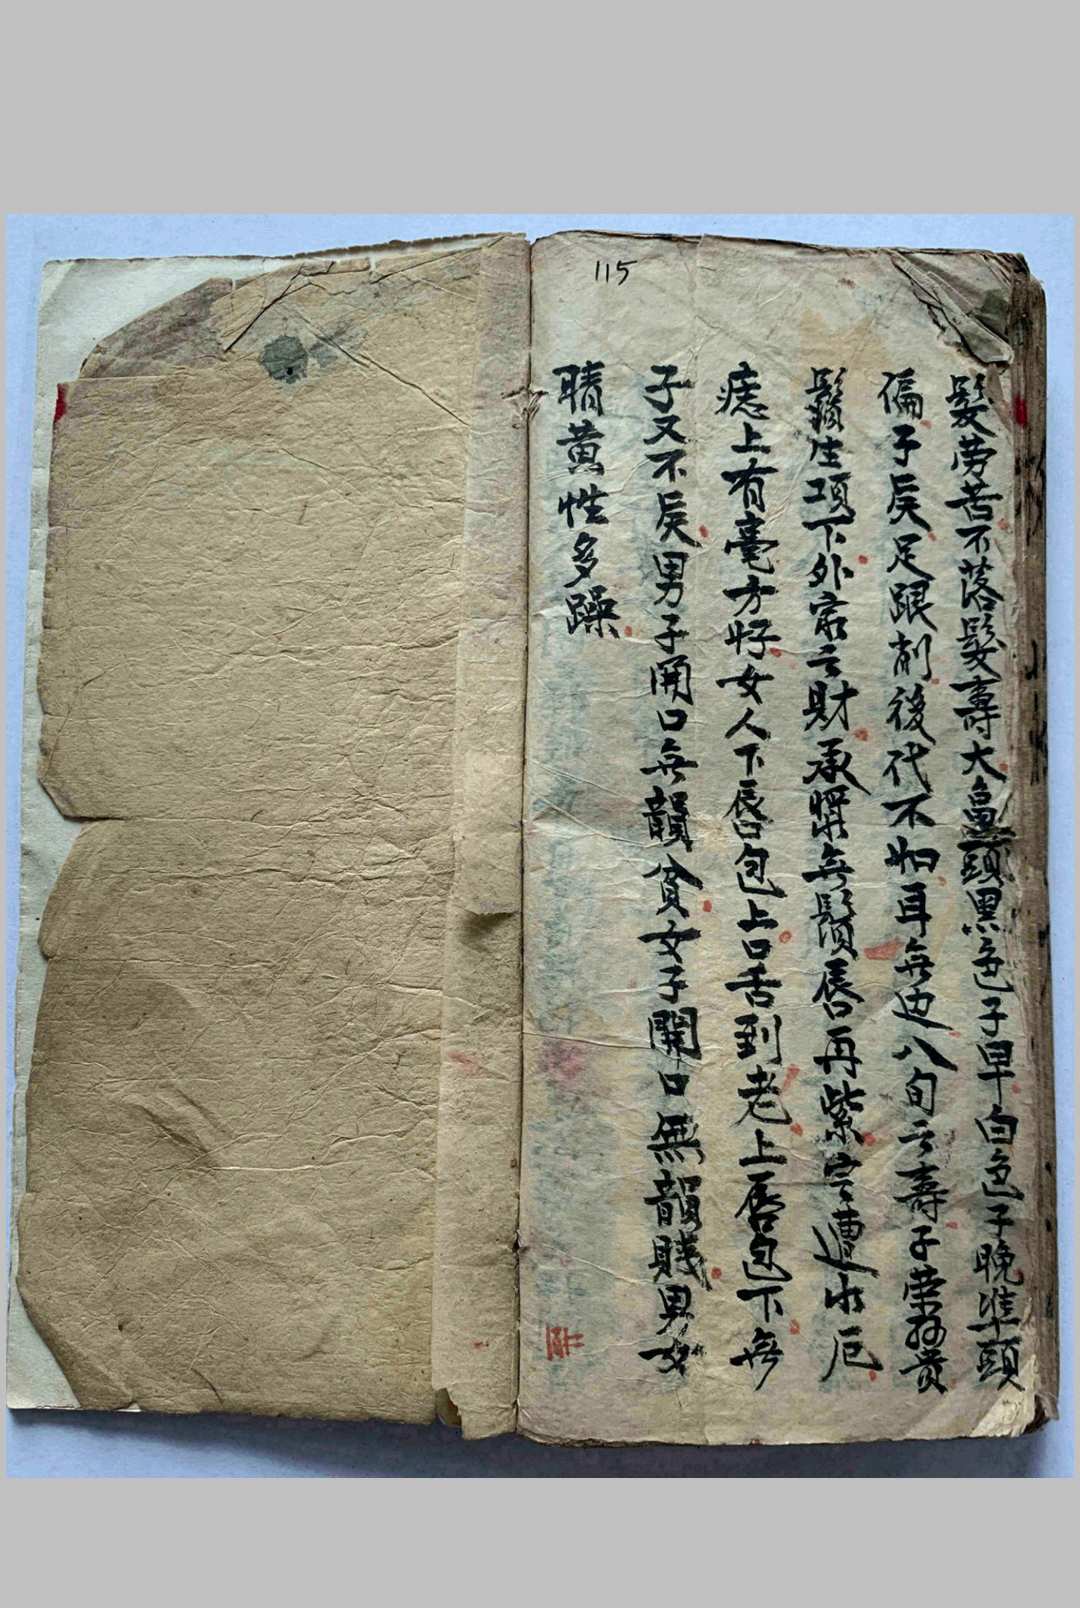 115
髮劳苦不落髮壽大鼻頭黑色子早白色子晚準頭
偏子矣足跟削後代不旺耳無边八旬云壽子荣孙贵
鬚生項下外家云財承漿無鬚唇再紫定遭水厄
痣上有毫方好女人下唇包上口舌到老上唇包下無
子又不矣男子開口無韻贫女子開口無韻賎男女
睛黄性多躁